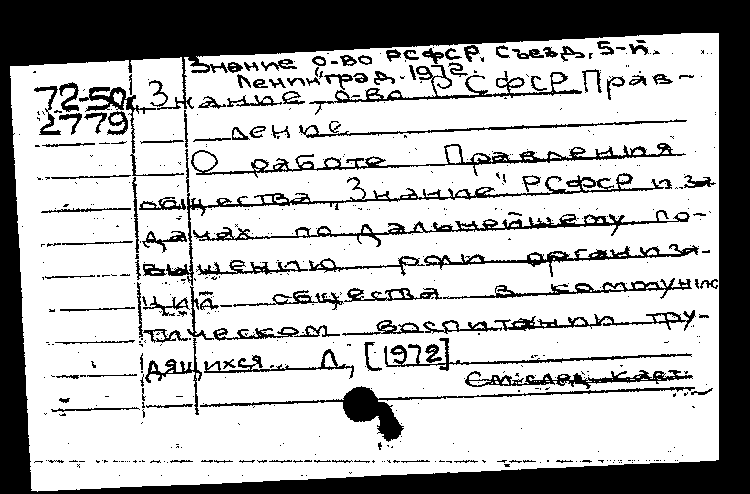 Знание о-во РСФСР. Съезд, 5-й.
Ленинград. 1972
72-50к Знание, о-во РСФСР Прав-
2779 ление
О работе Правления
общества „Знание" РСФСР и за
дачах по дальнейшему по-
вышению роли организа-
ций общества в коммунис
тическом воспитании тру-
дящихся... Л., [1972].
См. след. карт.